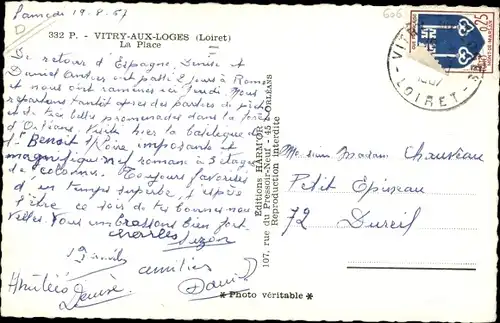 Samedi 19-8-67
332 P. - VITRY-AUX-LOGES (Loiret)
La Place
De retour d'Espagne, Denise et
Daniel ont passé 2 jours à
et nous ont ramenés ici jeudi. Nous
repartons tantôt après des parties de pêche
et très belles promenades dans la forêt
d'Orléans. Visité hier la basilique de
St Benoît s/Loire, imposante et
magnifique nef romane à 3 étages
de colonnes. Toujours favorisés
d'un temps superbe, j'espère
de bonnes nou
velles. Vous embrassons bien fort.
Charles Suzon
amitiés
Amitiés
Denise
Daniel
Editions HARMOR
107, rue du Pressoir-Neuf - 45 - ORLÉANS
Reproduction interdite
* Photo véritable *
0,25
VITRY
1967
LOIRET
Monsieur Madame Chauveau
Petit Epineau
72 Dureil